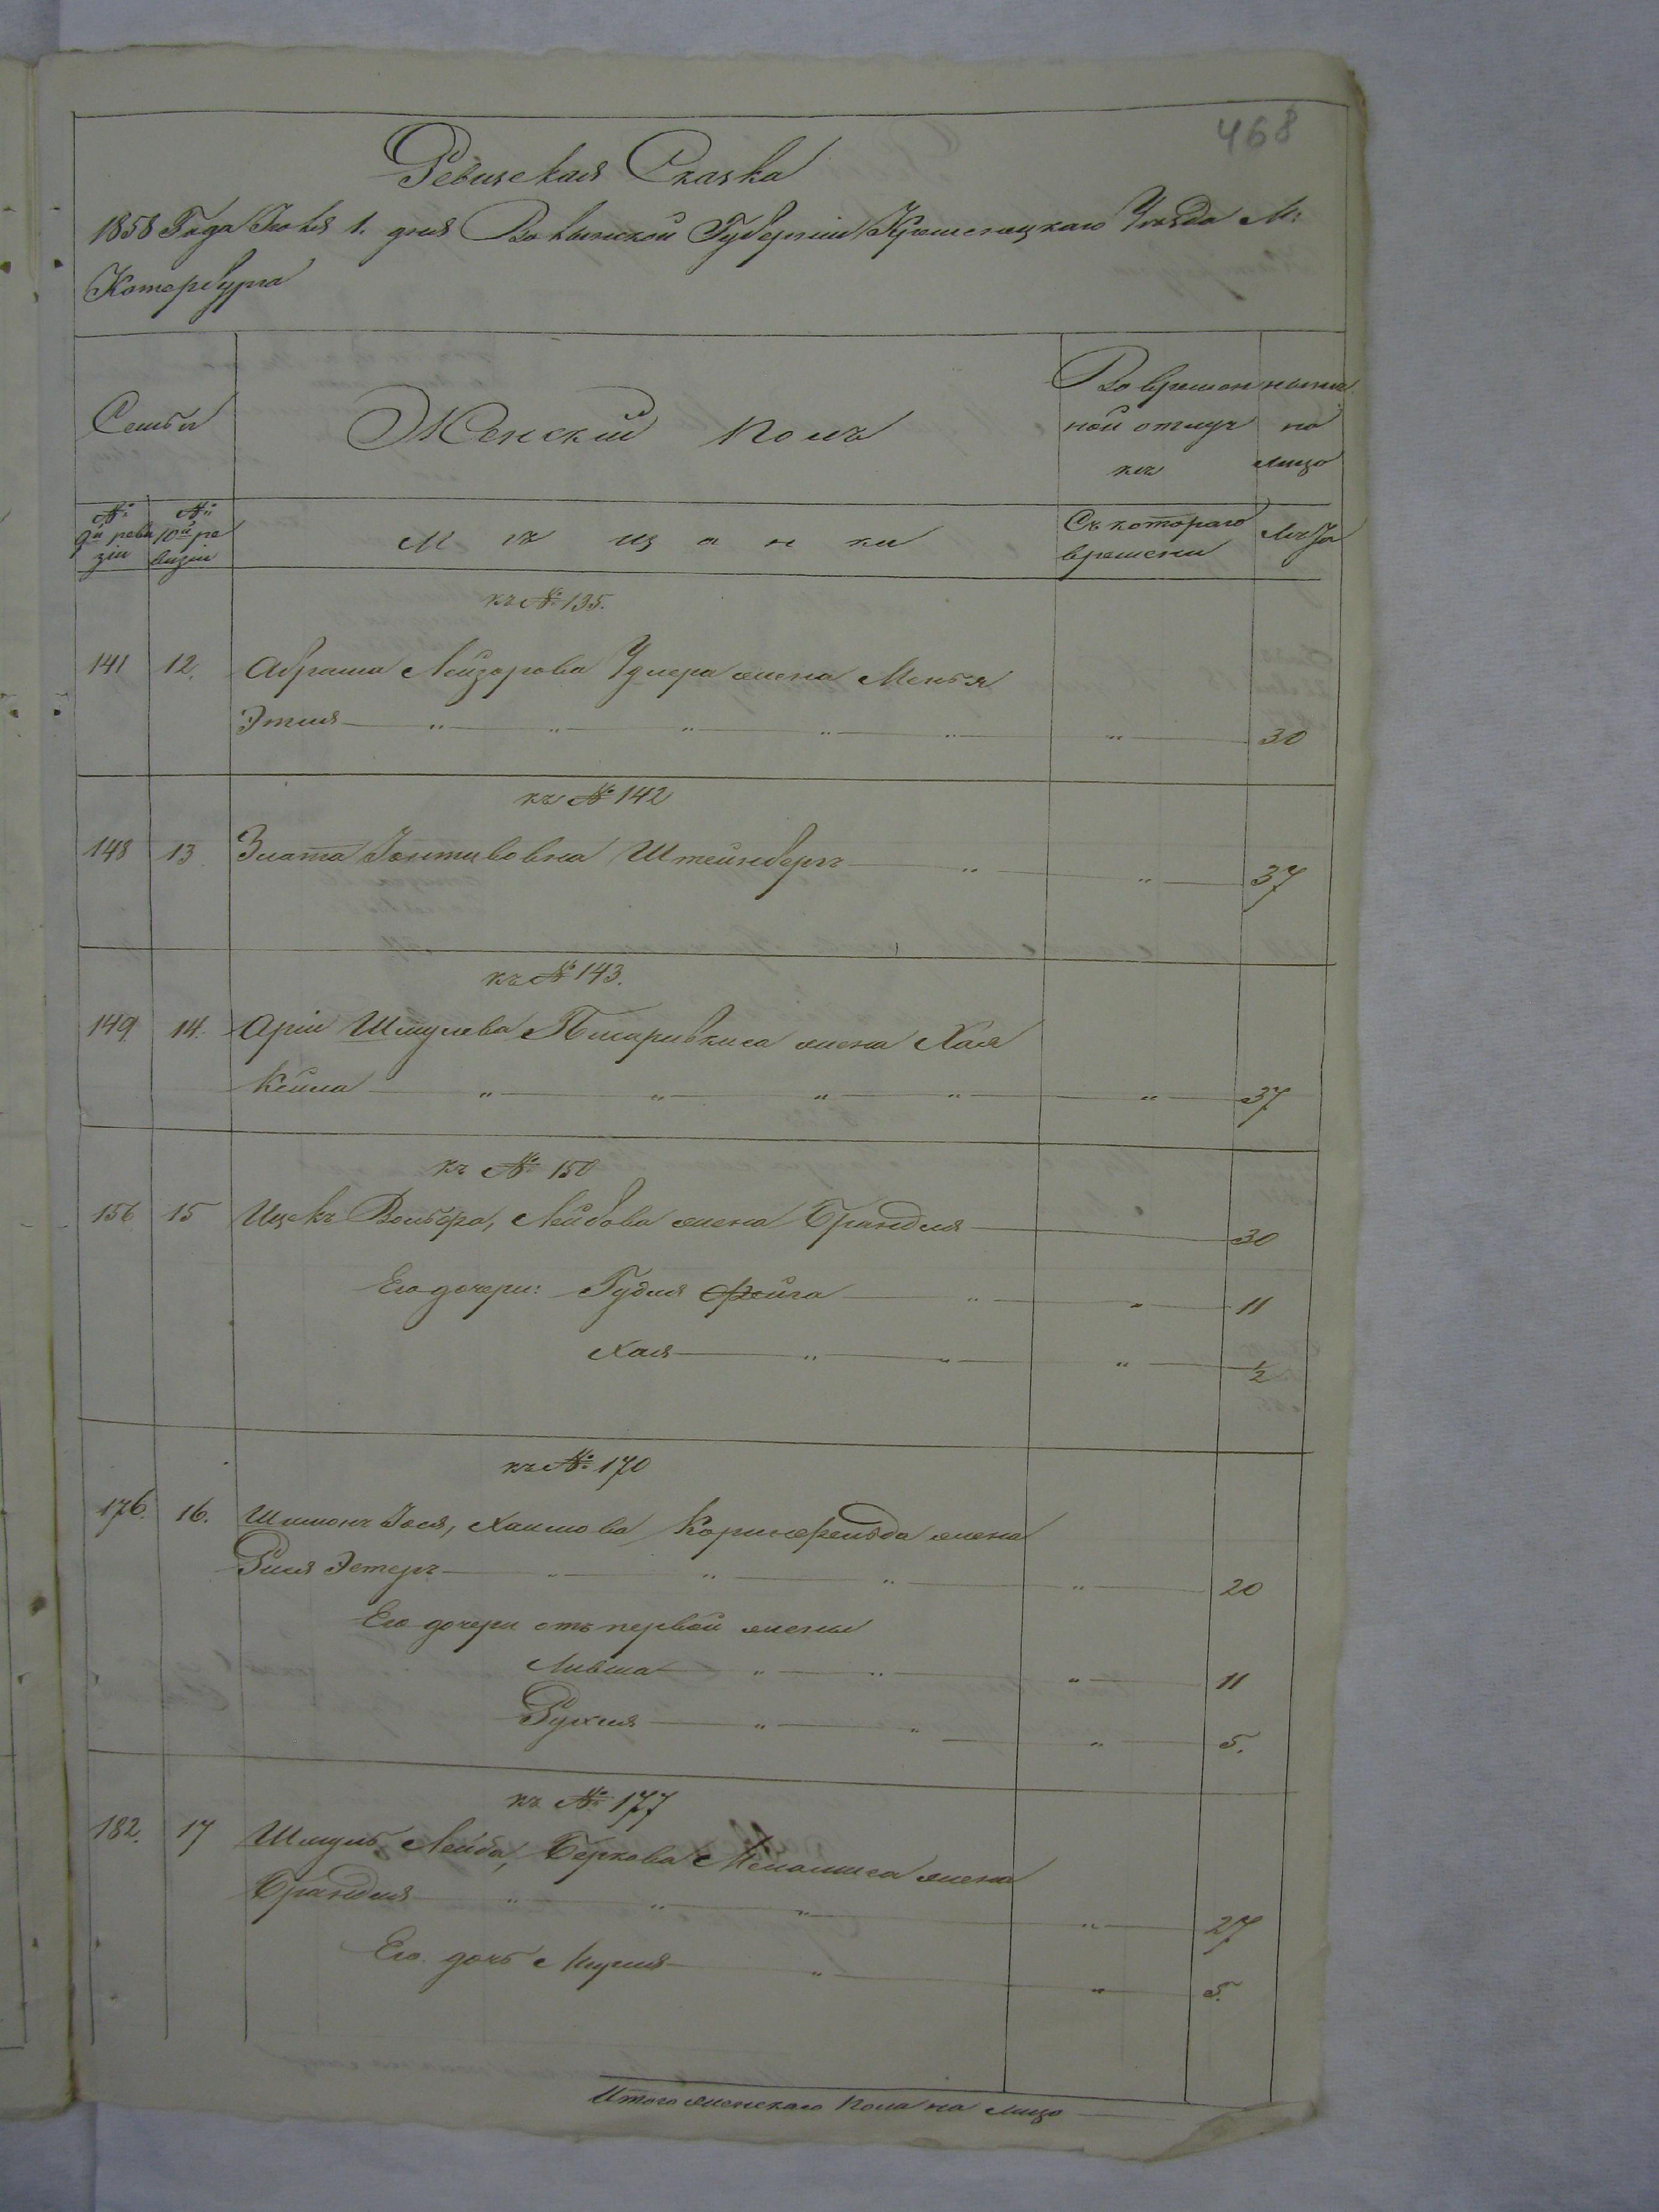 468
Ревизская Сказка
1858 Года Июня 1. дня Волынской Губерніи Кременецкаго Уѣзда М:
Катербурга
Семьи
Женскій полъ
Во времен
ной отлуч
кѣ
нынѣ
на
лицо
№:
9й реви
зіи
№:
10й ре
визіи
Мѣщанки
Съ котораго
времени
Лѣта
къ № 135.
141 12. Абрама Лейзорова Удлера жена Менья
Этля — " — " — " — " — " — " — 30
къ № 142
148 13 Злата Іонтивовна Штейнбергъ — " — " — 37
къ № 143.
149. 14. Арія Шмулева жена Хая
Кейла — " — " — " — " — " — 37
къ № 150
156 15 Ицекъ Лейбова жена Брандля — 30
Его дочери: Гудля Фейга — " — " — 11
Хая — " — " — " — 1/2
къ № 170
176. 16. Шимонъ Іося, Хаимова Корнфельда жена
Рися Эстеръ — " — " — " — " — 20
Его дочери отъ первой жены
Ливша — " — " — " — 11
Рухля — " — " — " — 5.
къ № 177
182. 17 Шмуль Лейба, Беркова жена
Брандля — " — " — " — " — 27
Его дочь — " — " — 5.
Итого женскаго пола на лицо —